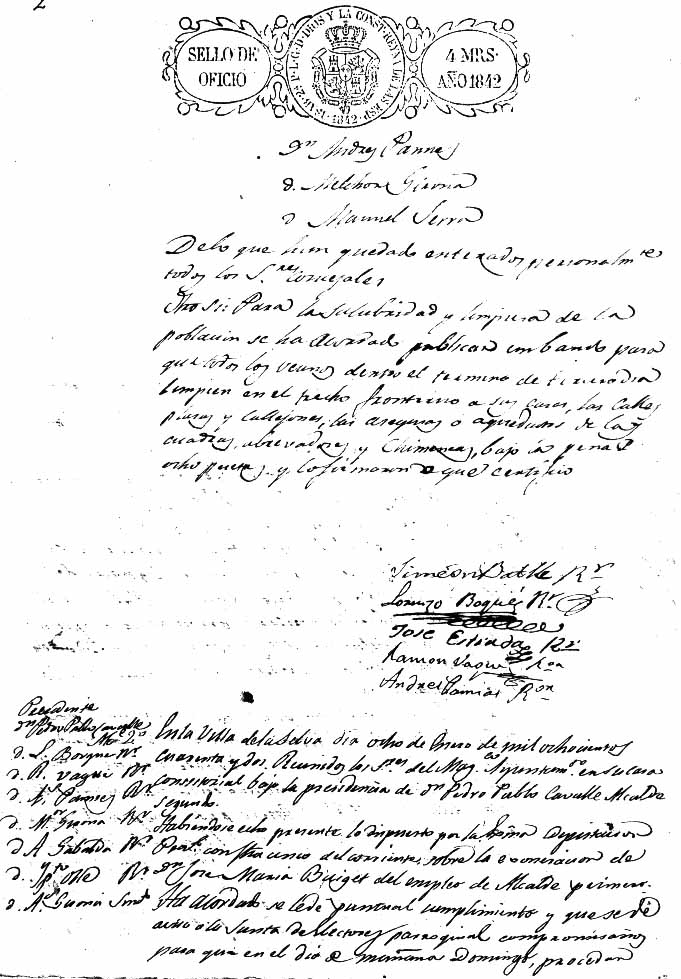 2
SELLO DE OFICIO
ISAB. 2ª P. L. G. D. DIOS Y LA CONST. REYNA DE LAS ESP. 1842
4 MRS. AÑO 1842
Dn Andres
d. Melchor Girona
d Manuel Serra
De lo que han quedado enterados personalmte
todos los Sres Concejales
Otro si: Para la salubridad y limpieza de la
poblacion se ha acordado publicar un bando para
que todos los vecinos dentro el termino de tercero dia
limpien en el trecho fronterizo a sus casas, las calles
plazas y callejones, las asequias o aqueductos de las
cuadras, abrevadores y Chimeneas, bajo la pena de
ocho pesetas y lo firmaron de que certifico
Simeon Batlle Rr
Lorenzo Boqués Rr
Jose Estrada Rr
Ramon Vaqué Ror
Andres Ror
Presidente
dn Pedro Pablo Cavallé
Alc. 2º
d. L. Boques Rr
d. R. Vaqué Rr
d. Rr
d. Mor Girona Rr
d A Rr
d. Rr
d. Girona Sindo
En la Villa de la Selva dia ocho de Enero de mil ochocientos
cuarenta y dos. Reunidos los Sres del Mag. Ayuntamto en su casa
consistorial bajo la presidencia de Dn Pedro Pablo Cavallé Alcalde
segundo.
Habiendose echo presente lo dispuesto por la Exma Deputacion
Proal con fha cinco del corriente, sobre la exoneracion de
Dn Jose Maria Puiget del empleo de Alcalde primero.
Ha acordado se le de puntual cumplimiento y que se dé
aviso a la Junta de electores parroquial compromisarios
para que en el dia de mañana Domingo, procedan